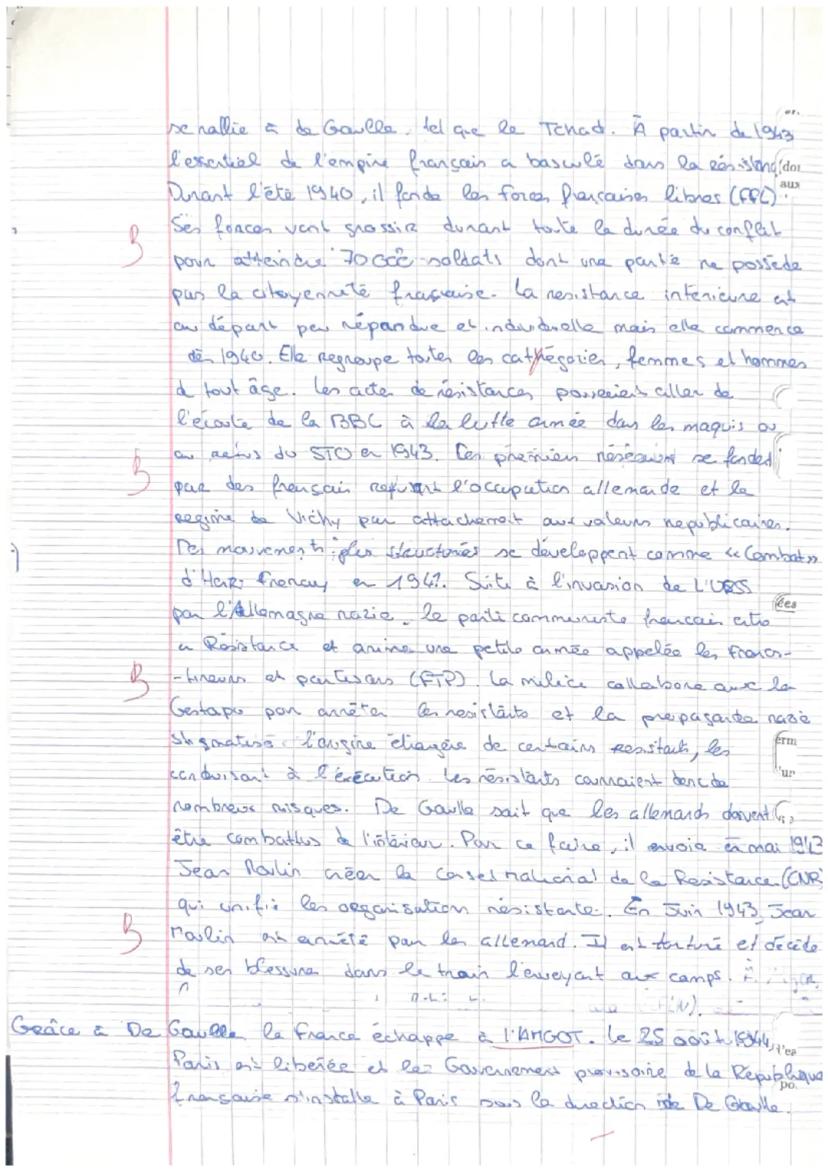 se rallie à de Gaulle, tel que le Tchad. À partir de 1943
l'essentiel de l'empire français a basculé dans la résistance
Durant l'été 1940, il fonde les forces françaises libres (FFL).
Ses forces vont grossir durant toute la durée du conflit
B
pour atteindre 70 000 soldats dont une partie ne possède
pas la citoyenneté française. La resistance intérieure est
au départ peu répandue et individuelle mais elle commence
dès 1940. Elle regroupe toutes les cathégories, femmes et hommes
à tout âge. Les actes de résistances pouvaient aller de
l'écoute de la BBC à la lutte armée dans les maquis ou
au refus du STO en 1943. Ces premiers réseaux se fondent
B
par des français refusant l'occupation allemande et le
regime de Vichy par attachement aux valeurs républicaines.
Des mouvements plus structurés se développent comme « Combat »
d'Henri Frenay en 1941. Suite à l'invasion de l'URSS
par l'Allemagne nazie, le parti communiste francais entre
en Résistance et anime une petite armée appelée les francs-
B
-tireurs et partisans (FTP). La milice collabore avec la
Gestapo pour arrêter les resistants et la propagande nazie
stigmatise l'origine étrangère de certains resistants, les
conduisant à l'éxécution. Les résistants couraient donc de
nombreux risques. De Gaulle sait que les allemands doivent
être combattus de l'intérieur. Pour ce faire, il envoie en mai 1943
Jean Moulin créer le Conseil national de la Resistance (CNR)
qui unifie les organisation résistante. En Juin 1943, Jean
B
Moulin est arrêté par les allemand. Il est torturé et décède
de ses blessure dans le train l'envoyant aux camps.
Grâce à De Gaulle la France échappe à l'AMGOT. Le 25 août 1944,
Paris est libérée et le Gouvernement provisoire de la République
française s'installe à Paris sous la direction de De Gaulle.